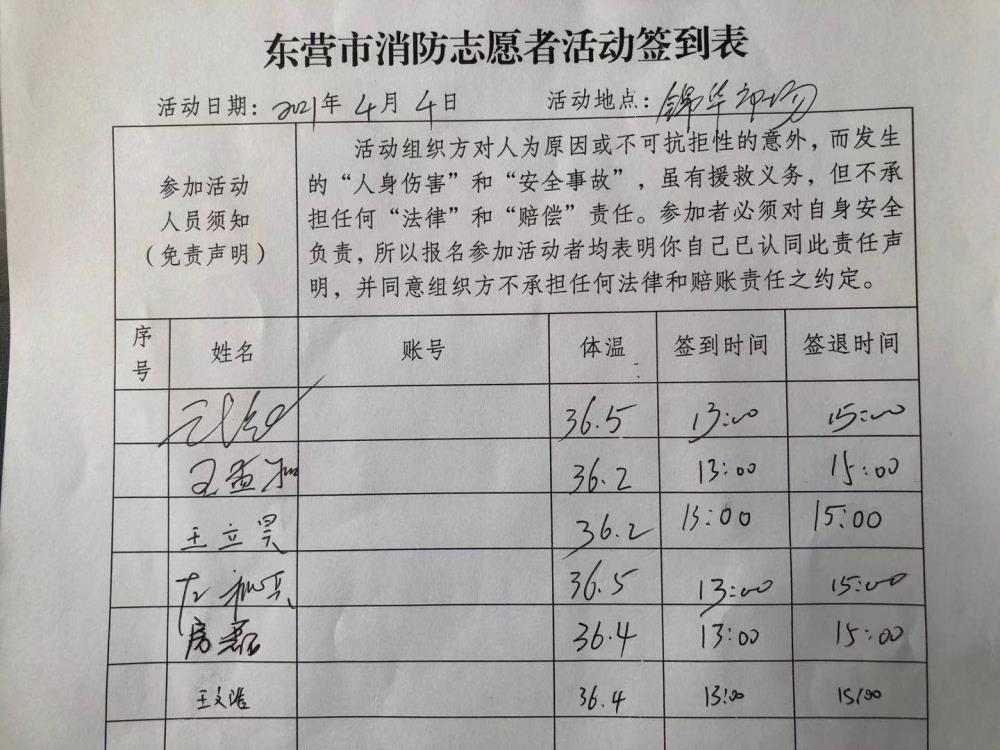 东营市消防志愿者活动签到表
活动日期: 2021年 4月 4日 活动地点: 锦华
参加活动
人员须知
(免责声明)
活动组织方对人为原因或不可抗拒性的意外，而发生
的“人身伤害”和“安全事故”，虽有援救义务，但不承
担任何“法律”和“赔偿”责任。参加者必须对自身安全
负责，所以报名参加活动者均表明你自己已认同此责任声
明，并同意组织方不承担任何法律和赔账责任之约定。
序号 姓名 账号 体温 签到时间 签退时间
36.5 13:00 15:00
王孟 36.2 13:00 15:00
王立昊 36.2 13:00 15:00
36.5 13:00 15:00
房磊 36.4 13:00 15:00
王文浩 36.4 13:00 15:00